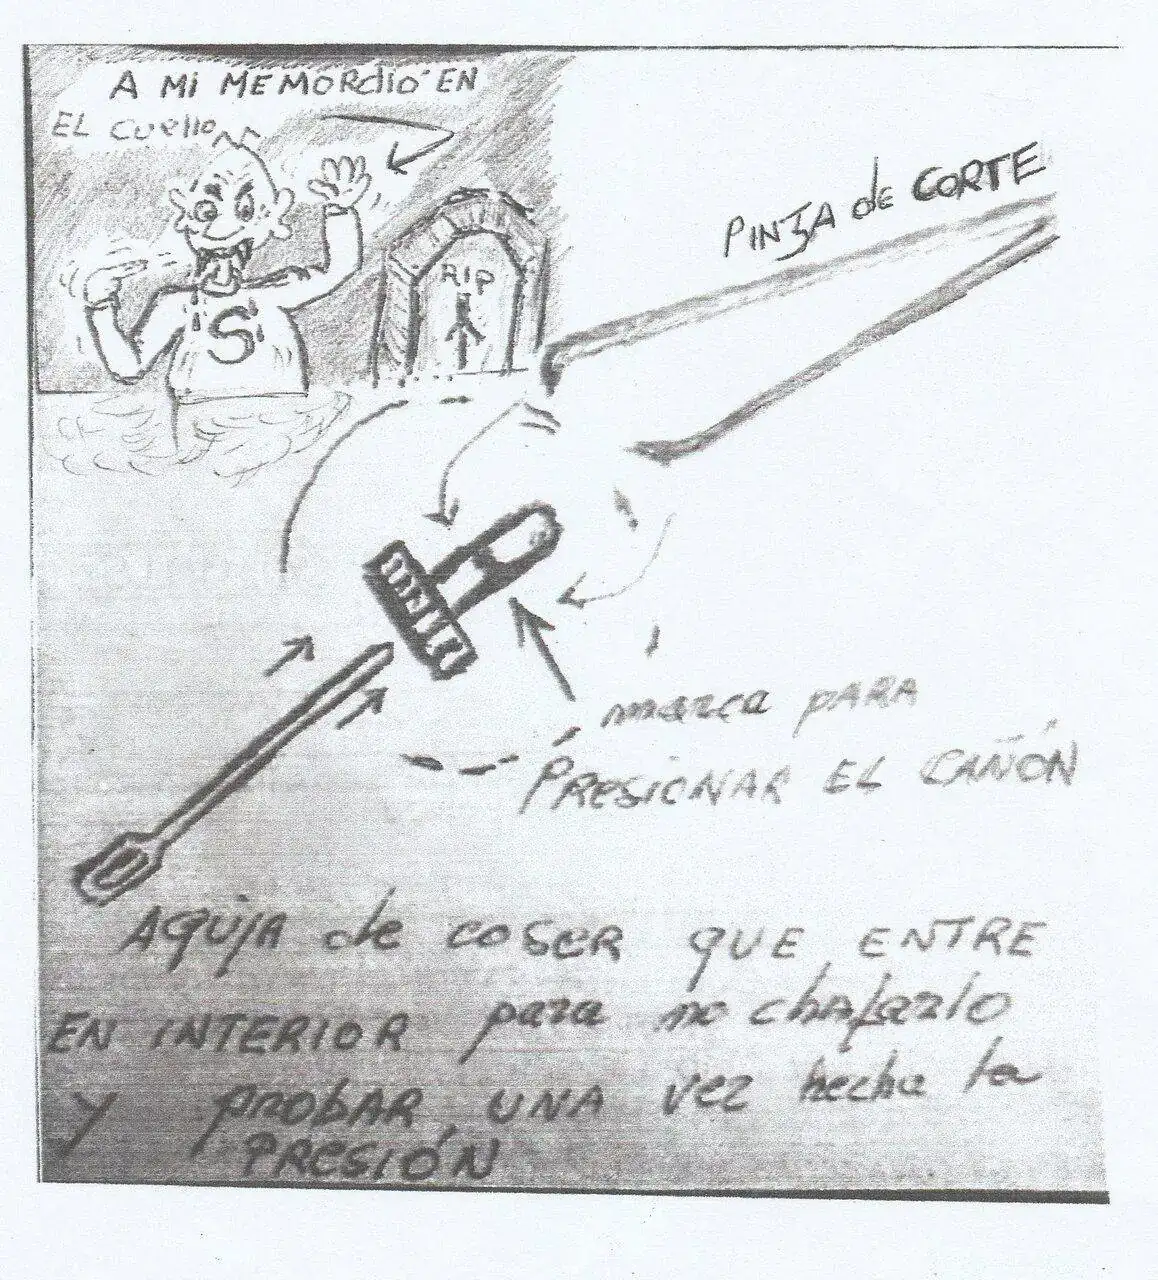 A MI ME MORDIÓ EN
EL CUELLO
RIP
S
PINZA de CORTE
marca PARA
PRESIONAR EL CAÑÓN
AGUJA de COSER QUE ENTRE
EN INTERIOR para no chafarlo
Y PROBAR UNA VEZ hecha la
PRESIÓN